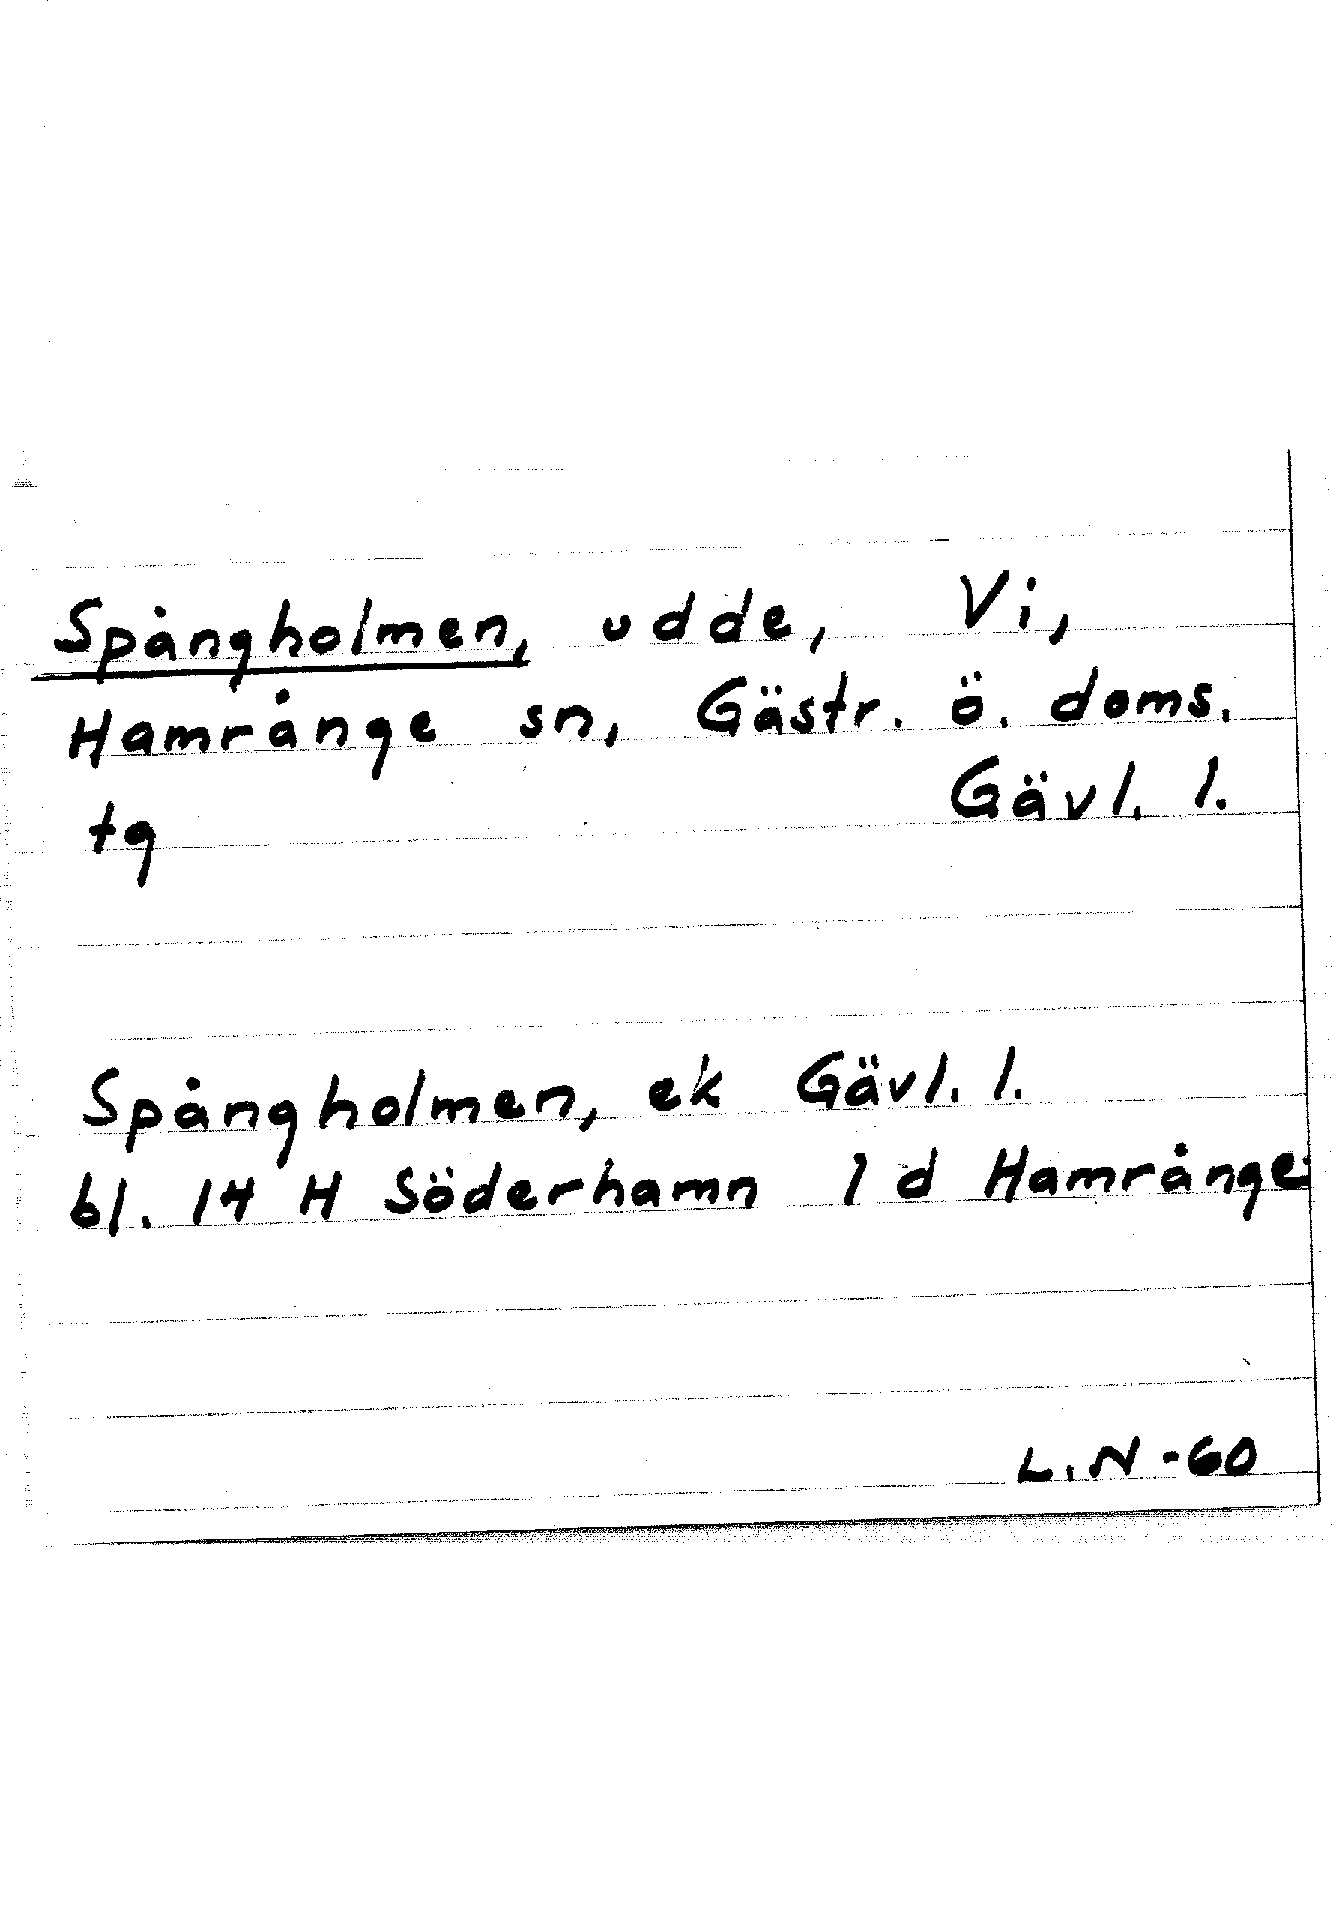 Spångholmen, udde, Vi,
Hamrånge sn, Gästr. ö. doms.
tg Gävl. l.
Spångholmen, ek Gävl. l.
bl. 14 H Söderhamn 1 d Hamrånge
L.N -60